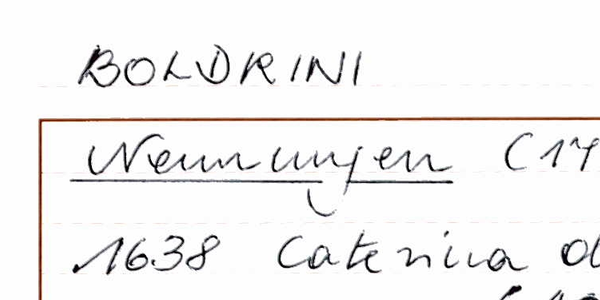 BOLDRINI
Nennungen (17
1638 Caterina d